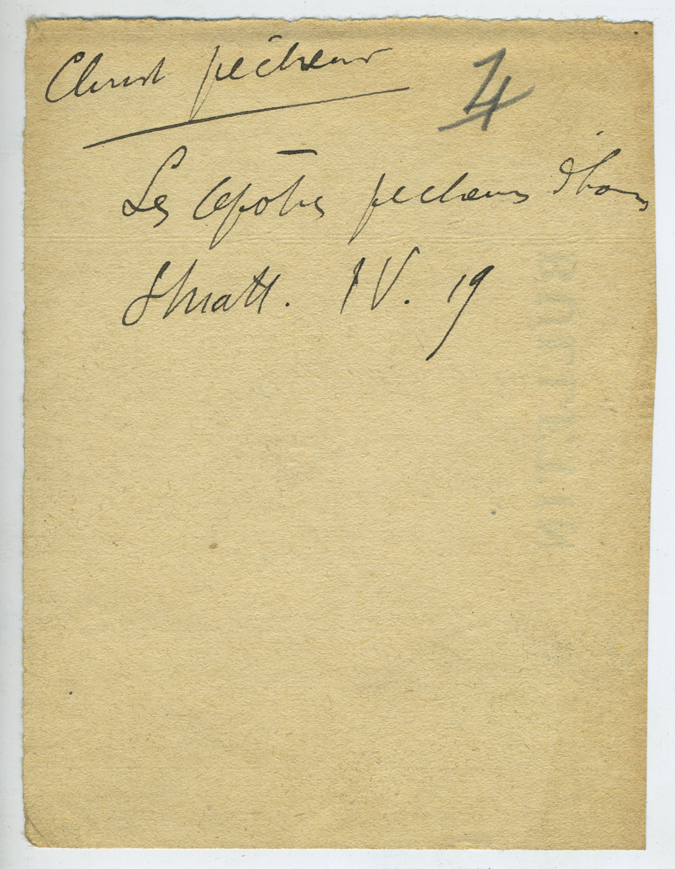 Christ pêcheur
4
Les Apôtres pêcheurs d'hom
S Matt. IV. 19